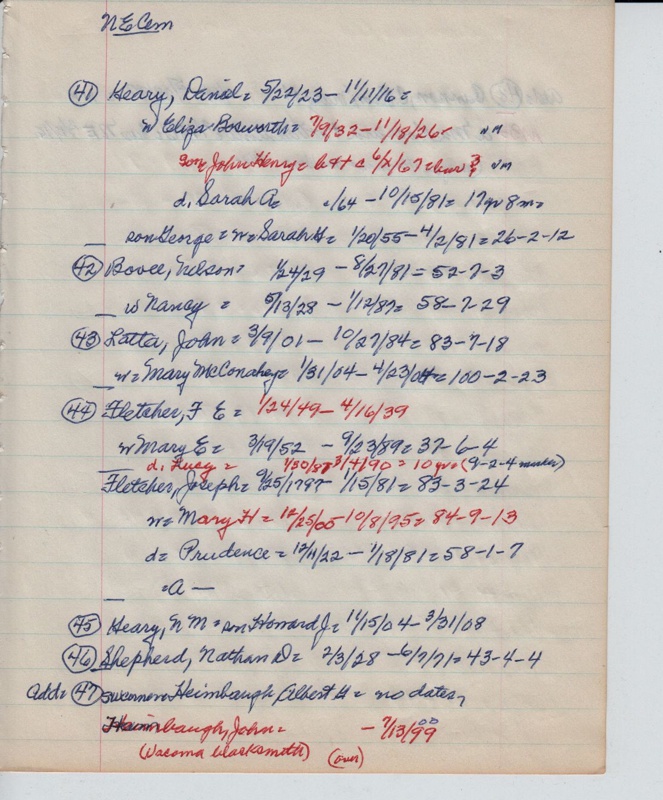 N E Cem
(41) Heary, Daniel = 5/22/23 - 11/11/16 =
w Eliza Bosworth = 7/9/32 - 11/18/26 - nm
son John Henry = b + d 6/ /67 = nm
d. Sarah A = /64 - 10/15/81 = 17 yr 8 m =
son George = w = Sarah H = 1/20/55 - 4/2/81 = 26-2-12
(42) Bovee, Nelson = 1/24/29 - 8/27/81 = 52-7-3
w Nancy = 5/13/28 - 1/12/87 = 58-7-29
(43) Latta, John = 3/9/01 - 10/27/84 = 83-7-18
w = Mary McConahey = 1/31/04 - 4/23/04 = 100-2-23
(44) Fletcher, F E = 1/24/49 - 4/16/39
w Mary E = 3/19/52 - 9/23/89 = 37-6-4
d. Lucy = 1/30/8 3/4/90 = 10 yr = (9-2-4 marker)
Fletcher, Joseph = 9/25/1797 - 1/15/81 = 83-3-24
w = Mary H = 12/25/00 - 10/8/95 = 84-9-13
d = Prudence = 12/11/22 - 1/18/81 = 58-1-7
= A —
(45) Heary, N M = son Howard J = 11/15/04 - 3/31/08
(46) Shepherd, Nathan D = 2/3/28 - 6/7/71 = 43-4-4
Add = (47) Heimbaugh, Albert H = no dates,
Heimbaugh, John = - 7/13/99 00
(Wacoma blacksmith) (over)